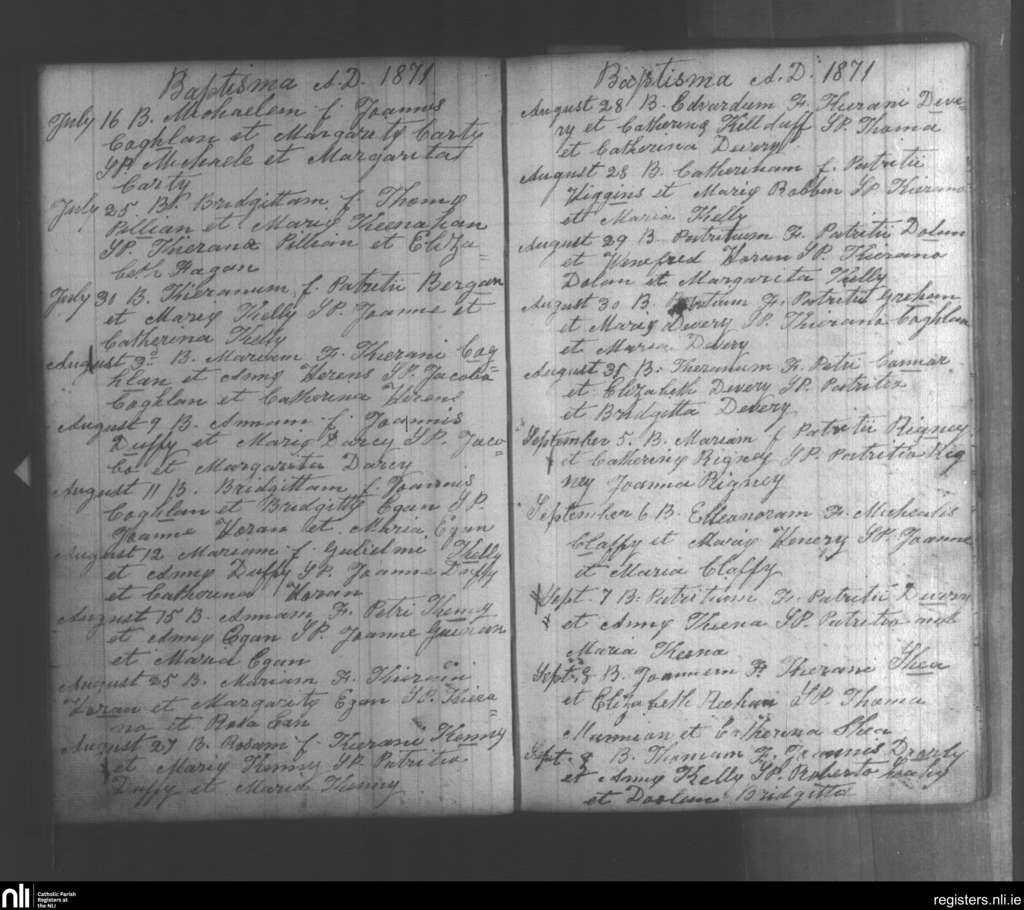 Baptisma A.D. 1871
July 16 B. Michaelem f. Joannis
Coghlan et Margarity Carty
SP. Michaele et Margarita
Carty
July 25 B. Bridgittam f. Thomy
Pillian et Mariy Keenahan
SP. Kierano Pillian et Eliza=
beth Fagan
July 31 B. Kieranum f. Patritii Bergan
et Mariy Kelly SP. Joanne et
Catherina Kelly
August 3 B. Mariam F. Kierani Cog=
hlan et Anny Kerens SP. Jacobo
Coghlan et Catherina Kerens
August 9 B. Annam f. Joannis
Duffy et Mariy Darcy SP. Jaco=
bo et Margarita Darcy
August 11 B. Bridgittam f. Joannis
Coghlan et Bridgitty Egan SP.
Joanne Horan et Maria Egan
August 12 Mariam f. Gulielmi Kelly
et Anny Duffy SP. Joanne Duffy
et Catherina Horan
August 15 B. Annam F. Petri Kenny
et Anny Egan SP. Joanne Guinan
et Maria Egan
August 25 B. Mariam F. Kierani
Horan et Margarity Egan SP. Kiera=
no et Rosa Ean
August 27 B. Rosam f. Kierani Kenny
et Mariy Kenny SP. Patritio
Duffy et Maria Kenny
Baptisma A.D. 1871
August 28 B. Edvardum F. Kierani Deve
ry et Catheriny Killduff SP. Thoma
et Catherina Devery
August 28 B. Catherinam f. Patritii
Higgins et Mariy Robben SP. Kierano
et Maria Kelly
August 29 B. Patritium F. Patritii Dolan
et Winefred Horan SP. Kierano
Dolan et Margarita Kelly
August 30 B. Patritium F. Patritii Greham
et Mariy Devery SP. Kierano Coghlan
et Maria Devery
August 31 B. Kieranum F. Petri
et Elizabeth Devery SP. Patritio
et Bridgitta Devery
September 5. B. Mariam f Patritii Rigney
et Catheriny Rigney SP. Patritio Rig
ney Joanna Rigney
September 6 B. Elleonoram F. Michealis
Claffy et Mariy Henery SP. Joanne
et Maria Claffy
Sept. 7 B. Patritium F. Patritii
et Anny Keena SP. Patritio and
Maria Keena
Sept. 8 B. Joannem F. Kierani Shea
et Elizabeth Meehan SP. Thoma
Mannion et Catherina Shea
Sept. 8 B. Thomam F. Joannis
et Anny Kelly SP. Roberto
et Doolan Bridgitta
nli
Catholic Parish
Registers at
the NLI
registers.nli.ie